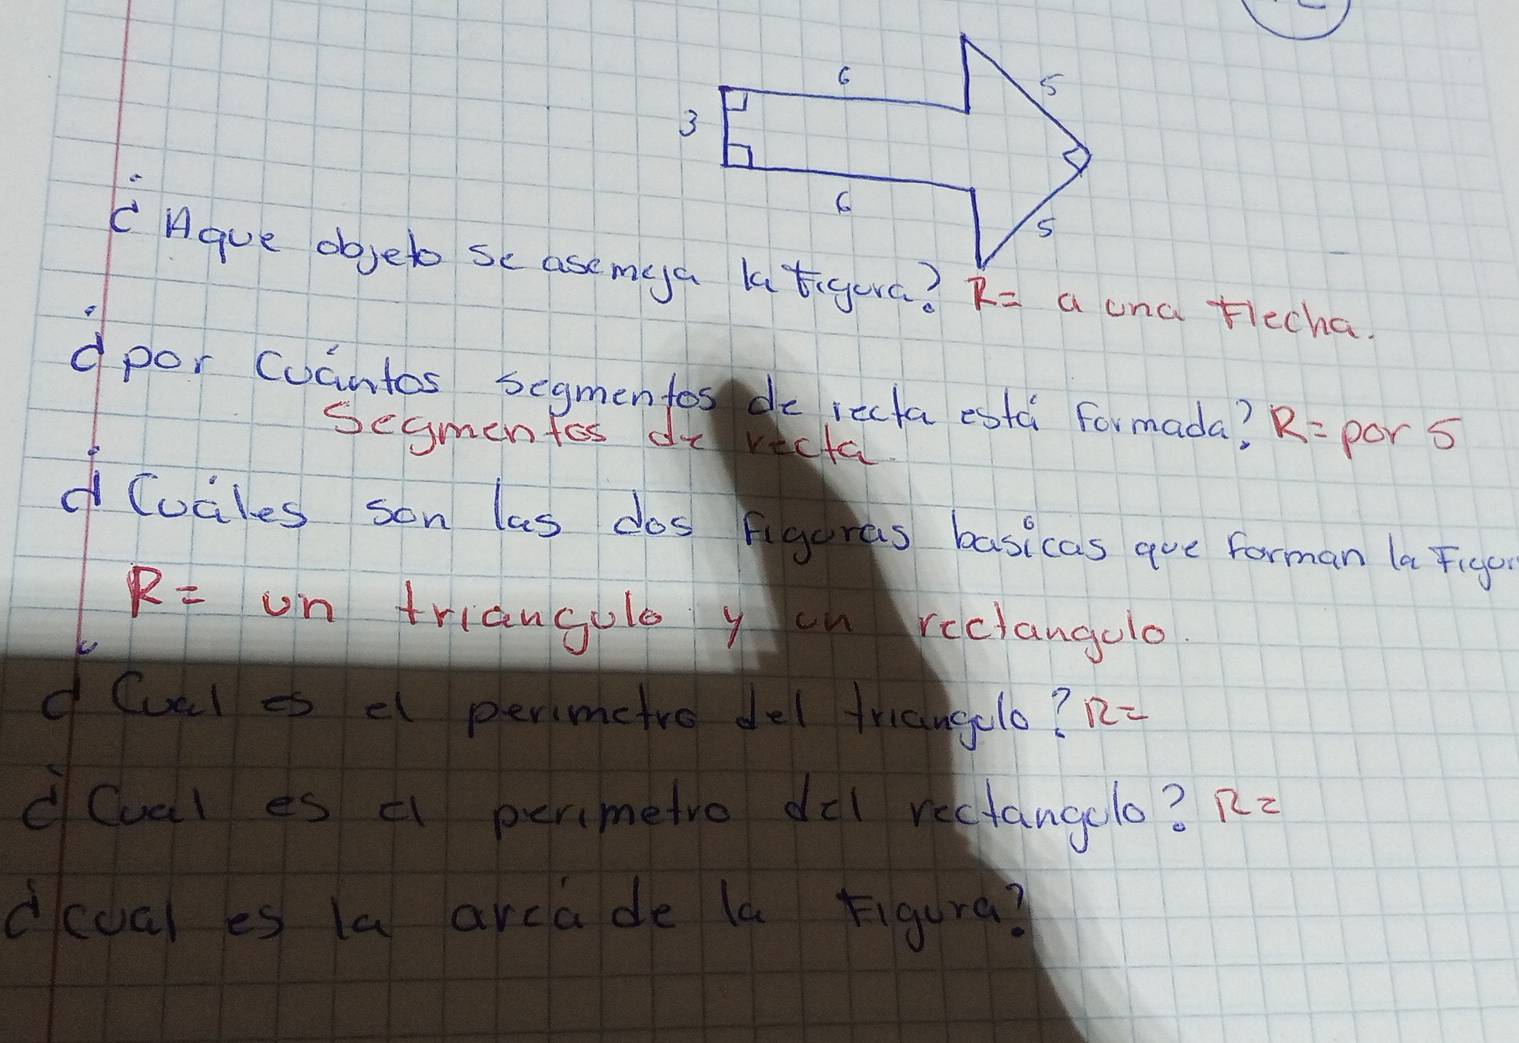 6
5
3
6
5
¿Aque objeto se asemeja la figura? R= a una flecha.
¿por cuántos segmentos de recta está formada? R= por 5
segmentos de recta.
¿Cuáles son las dos figuras basicas que forman la Figur
R= un triangulo y un rectangulo.
¿Cual es el perimetro del triangulo? R=
¿Cual es el perimetro del rectangulo? R=
¿cual es la areá de la Figura?